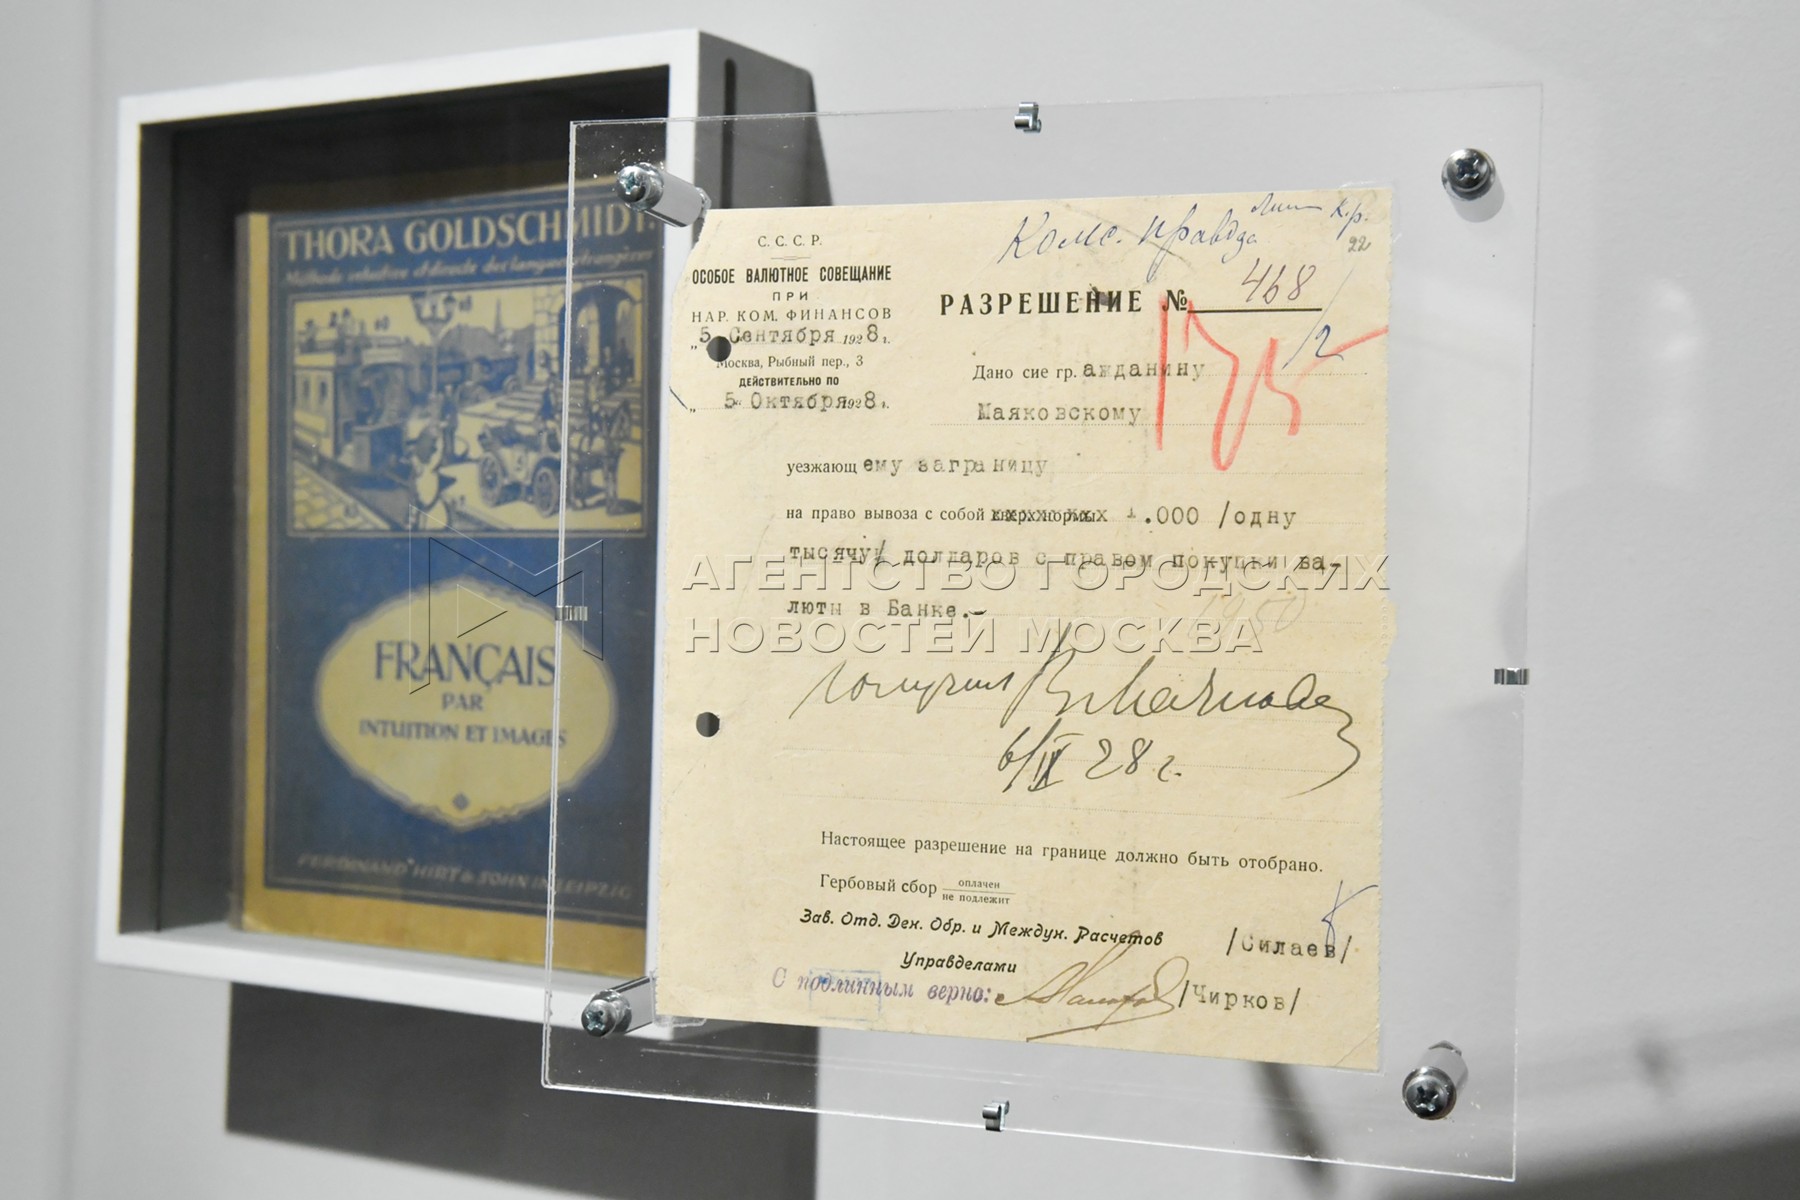 THORA GOLDSCHMIDT.
Méthode intuitive et directe des langues étrangères
FRANÇAIS
PAR
INTUITION ET IMAGES
FERDINAND HIRT & SOHN IN LEIPZIG
С. С. С. Р.
ОСОБОЕ ВАЛЮТНОЕ СОВЕЩАНИЕ
ПРИ
НАР. КОМ. ФИНАНСОВ
„5 Сентября 1928 г.
Москва, Рыбный пер., 3
ДЕЙСТВИТЕЛЬНО ПО
„ 5 Октября 1928 г.
Комс. правда
к.р.
22
РАЗРЕШЕНИЕ № 468
175
2
Дано сие гр. ажданину
Маяковскому
уезжающ ему заграницу
на право вывоза с собой сверх нормы 1.000 /одну
тысячу/ долларов с правом покупки ва-
люты в Банке.-
1950
получил В Маяковс
6/IX 28 г.
Настоящее разрешение на границе должно быть отобрано.
Гербовый сбор оплачен
не подлежит
Зав. Отд. Ден. Обр. и Междун. Расчетов /Силаев/
Управделами
С подлинным верно: /Чирков/
АГЕНТСТВО ГОРОДСКИХ
НОВОСТЕЙ МОСКВА